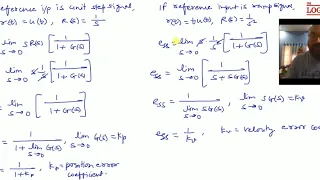 eference i/p is unit step signal,
r(t) = u(t), R(s) = 1/s
lim s→0 sR(s) [1/(1+G(s))]
lim s→0 s·1/s [1/(1+G(s))]
lim s→0 [1/(1+G(s))]
= 1/(1+lim s→0 G(s)), lim s→0 G(s) = Kp
= 1/(1+Kp), Kp = position error
coefficient.
If reference input is ramp signal,
r(t) = tu(t), R(s) = 1/s²
ess = lim s→0 s·1/s² [1/(1+G(s))]
ess = lim s→0 [1/(s+sG(s))]
ess = 1/(lim s→0 sG(s)), lim s→0 sG(s) = Kv
ess = 1/Kv, Kv = velocity error co
THE
LOG